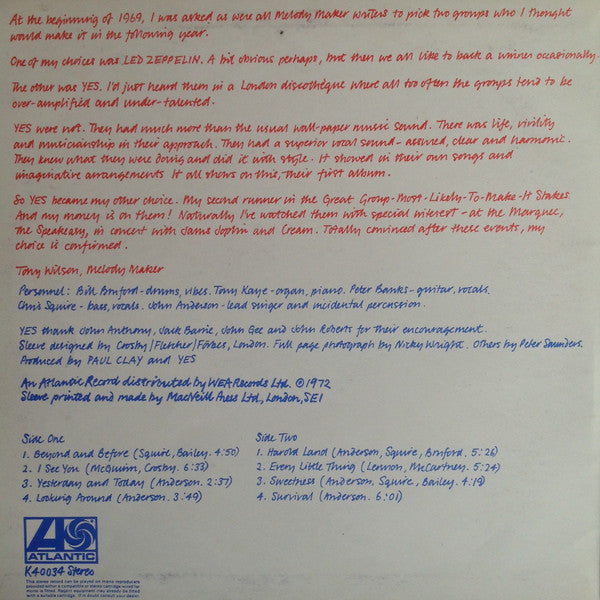 At the beginning of 1969, I was asked as were all Melody Maker writers to pick two groups who I thought
would make it in the following year.
One of my choices was LED ZEPPELIN. A bit obvious perhaps, but then we all like to back a winner occasionally.
The other was YES. I'd just heard them in a London discothèque where all too often the groups tend to be
over-amplified and under-talented.
YES were not. They had much more than the usual wall-paper music sound. There was life, virility
and musicianship in their approach. They had a superior vocal sound - assured, clear and harmonic.
They knew what they were doing and did it with style. It showed in their own songs and
imaginative arrangements It all shows on this, their first album.
So YES became my other choice. My second runner in the Great Group-Most-Likely-To-Make-It Stakes
And my money is on them! Naturally I've watched them with special interest - at the Marquee,
the Speakeasy, in concert with Janis Joplin and Cream. Totally convinced after these events, my
choice is confirmed.
Tony Wilson, Melody Maker
Personnel: Bill Bruford - drums, vibes. Tony Kaye - organ, piano. Peter Banks - guitar, vocals.
Chris Squire - bass, vocals. John Anderson - lead singer and incidental percussion.
YES thank John Anthony, Jack Barrie, John Gee and John Roberts for their encouragement.
Sleeve designed by Crosby/Fletcher/Forbes, London. Full page photograph by Nicky Wright. Others by Peter Saunders.
Produced by PAUL CLAY and YES
An Atlantic Record distributed by WEA Records Ltd. ©1972
Sleeve printed and made by MacNeill Press Ltd., London, SE1
Side One
1. Beyond and Before (Squire, Bailey. 4:50)
2. I See You (McGuinn, Crosby. 6:33)
3. Yesterday and Today (Anderson. 2:37)
4. Looking Around (Anderson. 3:49)
Side Two
1. Harold Land (Anderson, Squire, Bruford. 5:26)
2. Every Little Thing (Lennon, McCartney. 5:24)
3. Sweetness (Anderson, Squire, Bailey. 4:19)
4. Survival (Anderson. 6:01)
ATLANTIC
K40034 Stereo
This stereo record can be played on mono reproducers
provided either a compatible or stereo cartridge wired for
mono is fitted. Recent equipment may already be fitted
with a suitable cartridge. If in doubt consult your dealer.